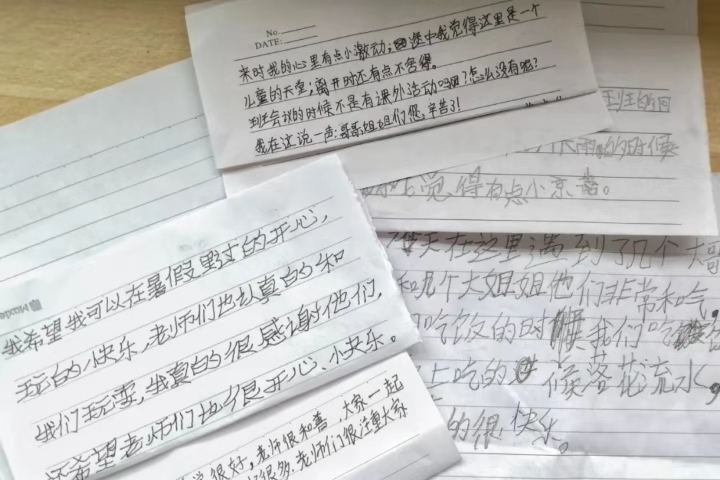 No.
DATE:
来时我的心里有点小激动;途中我觉得这里是一个
儿童的天堂;离开时还有点不舍得。
班会议的时候不是有课外活动吗?怎么没有呢?
我在这说一声:哥哥姐姐们您辛苦了!
的时候
觉得有点小
我希望我可以在暑假野过的开心,
玩的快乐,老师们也认真的和
我们玩耍,我真的很感谢他们,
还希望老师们也很开心、快乐。
很好,老师很和善,大家一起
很多.老师们很注重大家
天在这里遇到了几个大哥
和几个大姐姐他们非常和气,
吃饭的时候我们吃
上吃的 候落花流水,
的很快乐。